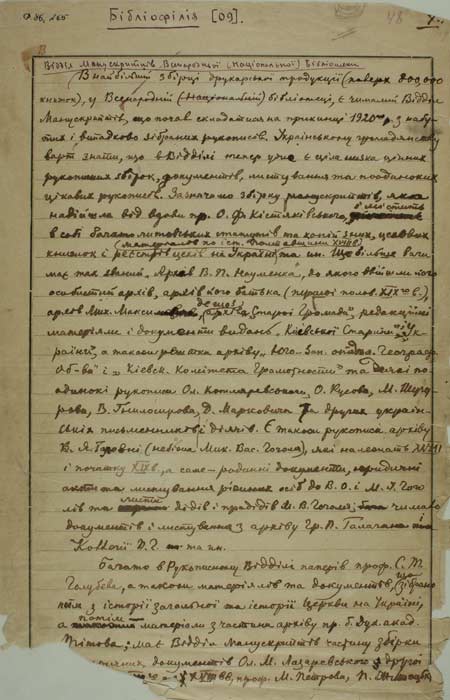 Ф 36, 265
Бібліофілія [09].
48
7..
В
Відділ Манускриптів Всенародньої (Національної) Бібліотеки
В найбільшій збірці друкарської продукції (поверх 800,000
книжок), у Всенародній (Національній) бібліотеці, є чималий Відділ
Манускриптів, що почав складатися на прикінці 1920 р. з набу-
тих і випадково зібраних рукописів. Українському громадянству
варт знати, що в Відділі тепер уже є ціла низка цінних
рукописних збірок, документів, листування та поодиноких
цікавих рукописів. Зазначимо збірку манускриптів, яка
надійшла від вдови пр. О. Ф. Кістяківського,
в собі багато литовських статутів та копій з них, цехових
(матеріялов по іст. Полтавщини XVIII в.)
книжок і реєстрів цехів на Україні та ин. Ще більше зай-
має так званий "Архів В. П. Науменка", до якого ввійшли його
особистий архів, архів його батька (першої полов. XIX-го в.),
архів Мих. Максимовича, архів Старої Громади, редакційні
матеріяли і документи видань "Київської Старини" і "Ук-
раїни", а також рештки архіву "Юго-Зап. отдѣл. Географ.
Об-ва" і "Кіевск. Комітета Грамотности" та деякі по-
одинокі рукописи Ол. Котляревського, О. Русова, М. Щуг-
рова, В. Беренштама, Д. Марковича та других україн-
ських письменників і діячів. Є також рукописи архіву
В. Я. Головні (небожа Мик. Вас. Гоголя), які належать XVIII
і початку XIX в., а саме - родинні документи, юридичні
акти та листування ріжних осіб до В. О. і М. І. Гого-
лів та листи дідів і прадідів М. В. Гоголя; чимало
документів і листування з архіву Гр. П. Галагана та
та ин.
Багато в Рукописному Відділі паперів проф. С. Т.
Голубєва, а також матеріялів та документів, що зібрано
ним з історії загальної та історії Церкви на Україні,
а потім матеріяли з частини архіву пр. б. Дух. акад.
Тітова; має Відділ Манускриптів частину збірки
документів Ол. М. Лазаревського з другої
XVIII вв., проф. М. Петрова, П.